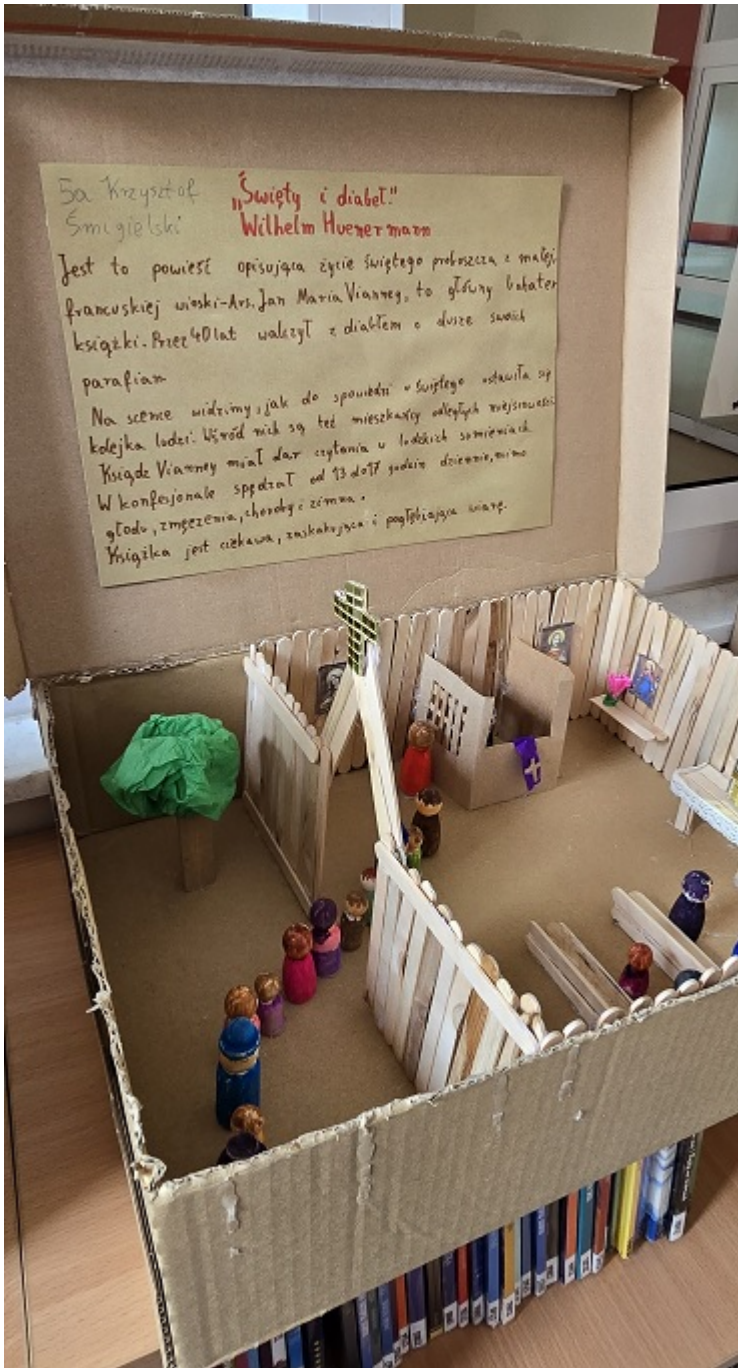 5a Krzysztof
Śmigielski
„Święty i diabeł."
Wilhelm Huenermann
Jest to powieść opisująca życie świętego proboszcza z małej,
francuskiej wioski-Ars. Jan Maria Vianney, to główny bohater
książki. Przez 40 lat walczył z diabłem o dusze swoich
parafian
Na scence widzimy, jak do spowiedzi u świętego ustawiła się
kolejka ludzi. Wśród nich są też mieszkańcy odległych miejscowości.
Ksiądz Vianney miał dar czytania w ludzkich sumieniach.
W konfesjonale spędzał od 13 do 17 godzin dziennie, mimo
głodu, zmęczenia, choroby i zimna.
Książka jest ciekawa, zaskakująca i pogłębiająca wiarę.